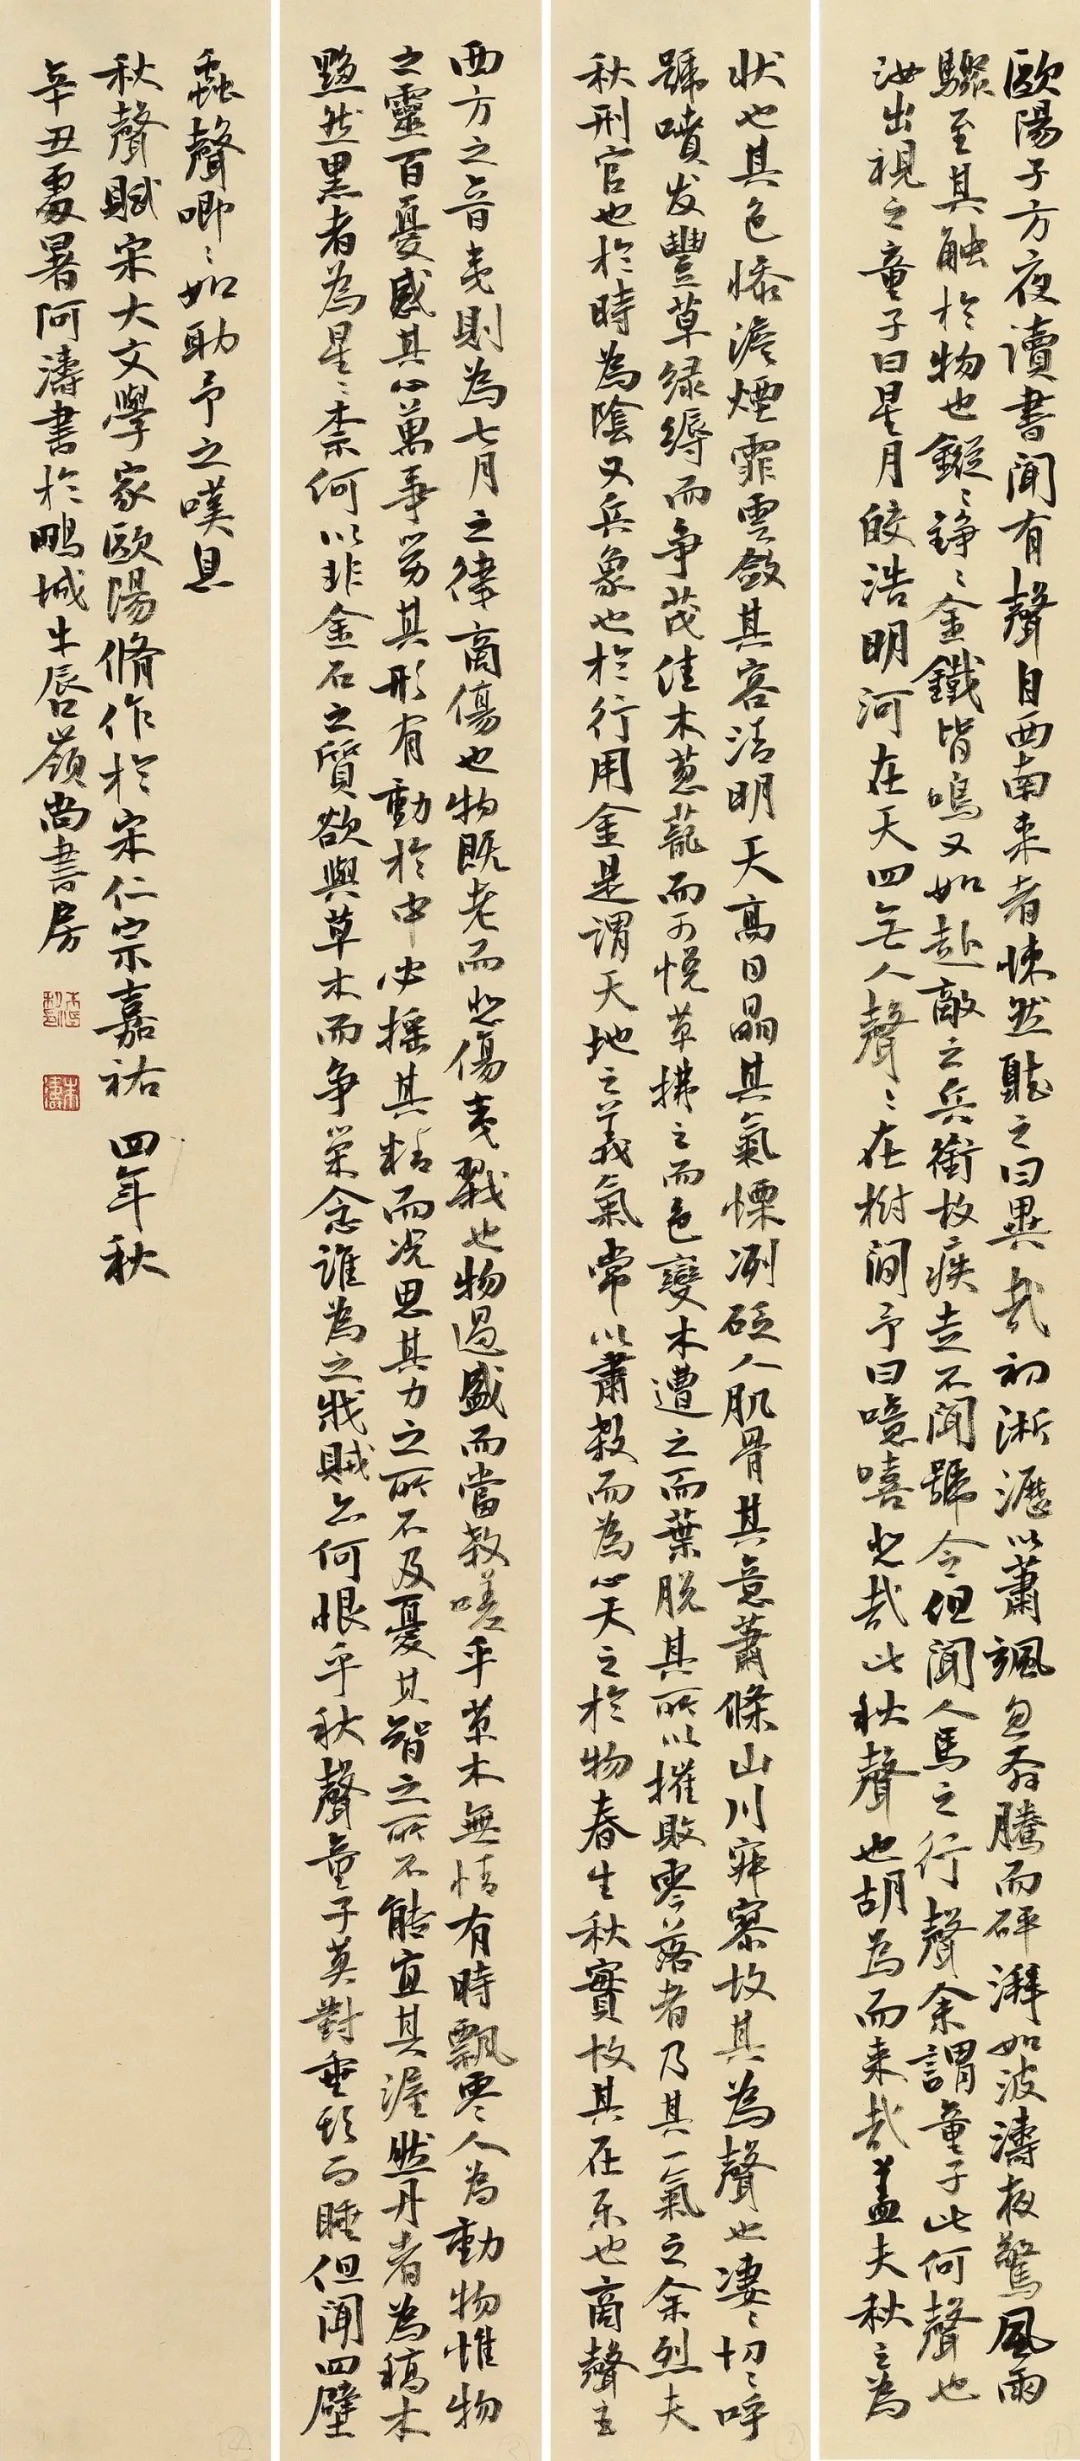 歐陽子方夜讀書聞有聲自西南来者悚然聽之曰異哉初淅瀝以蕭颯忽奔騰而砰湃如波濤夜驚風雨
驟至其触於物也鏦〻錚〻金鐵皆鳴又如赴敵之兵銜枚疾走不聞號令但聞人馬之行聲余謂童子此何聲也
汝出視之童子曰星月皎浩明河在天四无人聲〻在樹間予曰噫嘻悲哉此秋聲也胡為而来哉蓋夫秋之為
状也其色惨澹煙霏雲斂其容清明天高日晶其氣慄冽砭人肌骨其意蕭條山川寂寥故其為聲也淒〻切〻呼
號噴发豐草绿縟而争茂佳木葱蘢而可悦草拂之而色變木遭之而葉脱其所以摧敗零落者乃其一氣之余烈夫
秋刑官也於時為陰又兵象也於行用金是謂天地之義氣常以肅殺而為心天之於物春生秋實故其在乐也商聲主
西方之音夷則為七月之律商傷也物既老而悲傷夷戮也物過盛而當殺嗟乎草木無情有時飄零人為動物惟物
之靈百憂感其心萬事勞其形有動於中必摇其精而况思其力之所不及憂其智之所不能宜其渥然丹者為槁木
黟然黑者為星〻柰何以非金石之質欲與草木而争荣念誰為之戕賊亦何恨乎秋聲童子莫對垂頭而睡但聞四壁
蟲聲唧〻如助予之嘆息
秋聲賦宋大文學家歐陽脩作於宋仁宗嘉祐四年秋
辛丑處暑阿濤書於鵬城牛唇嶺尚書房